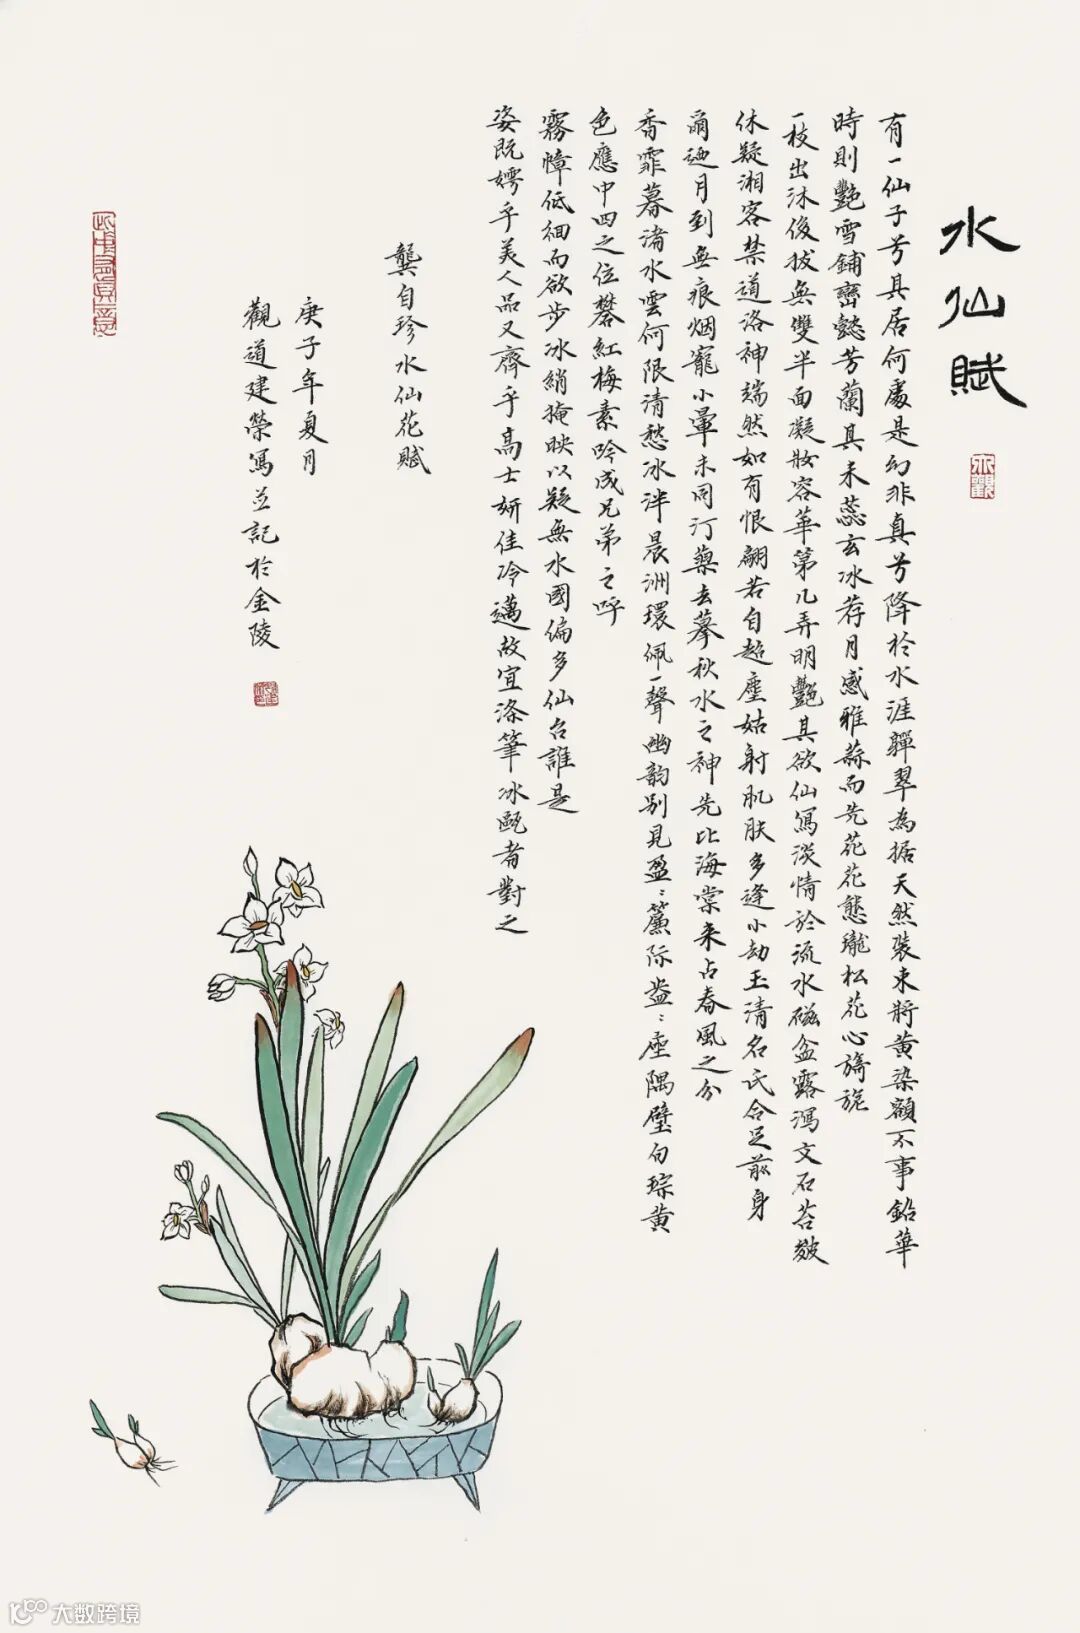 水仙賦
有一仙子兮其居何處是幻非真兮降於水涯嚲翠為裾天然裝束將黃染額不事鉛華
時則艷雪鋪巒懿芳蘭其未蕊玄冰荐月感雅蒜而先花花態瓏松花心旖旎
一枝出沐俊拔無雙半面凝妝容華第几弄明艷其欲仙寫淡情於流水磁盆露瀉文石苔皴
休疑湘客禁道洛神端然如有恨翩若自超塵姑射肌膚多逢小劫玉清名氏合足前身
爾迺月到無痕烟寵小暈未同汀蕖去摹秋水之神先比海棠来占春風之分
香霏暮渚水雲何限清愁冰泮晨洲環佩一聲幽韵别見盈：簾际盎：座隅璧白琮黃
色應中四之位礬紅梅素吟成兄弟之呼
霧幛低徊而欲步冰綃掩映以疑無水國偏多仙台誰是
姿既嫮乎美人品又齊乎高士妍佳冷邁故宜滌筆冰甌者對之
龔自珍水仙花賦
庚子年夏月
觀道建榮寫並記於金陵
大数跨境